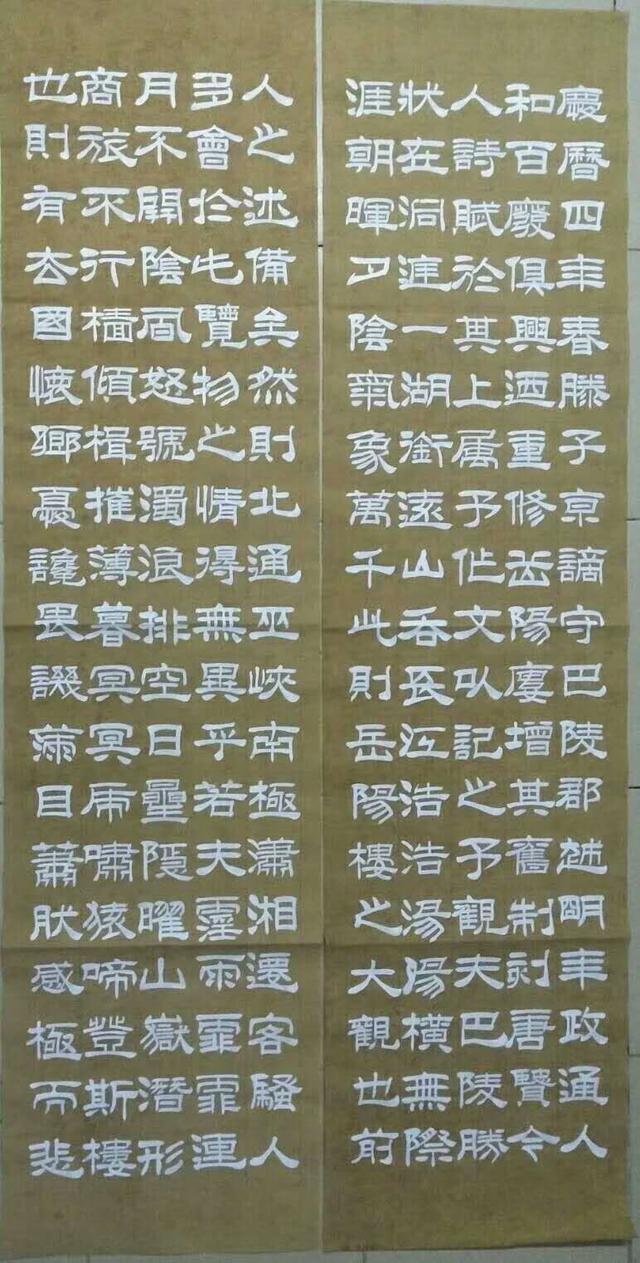 慶曆四年春滕子京謫守巴陵郡越明年政通人
和百廢俱興迺重修岳陽廔增其舊制刻唐賢今
人詩賦於其上属予作文以記之予觀夫巴陵勝
狀在洞庭一湖銜遠山吞長江浩浩湯湯橫無際
涯朝暉夕陰氣象萬千此則岳陽樓之大觀也前
人之述備矣然則北通巫峽南極瀟湘遷客騷人
多會於此覽物之情得無異乎若夫霪雨霏霏連
月不開陰風怒號濁浪排空日星隱曜山嶽潛形
商旅不行檣傾楫摧薄暮冥冥虎嘯猿啼登斯樓
也則有去國懷鄉憂讒畏譏滿目蕭然感極而悲